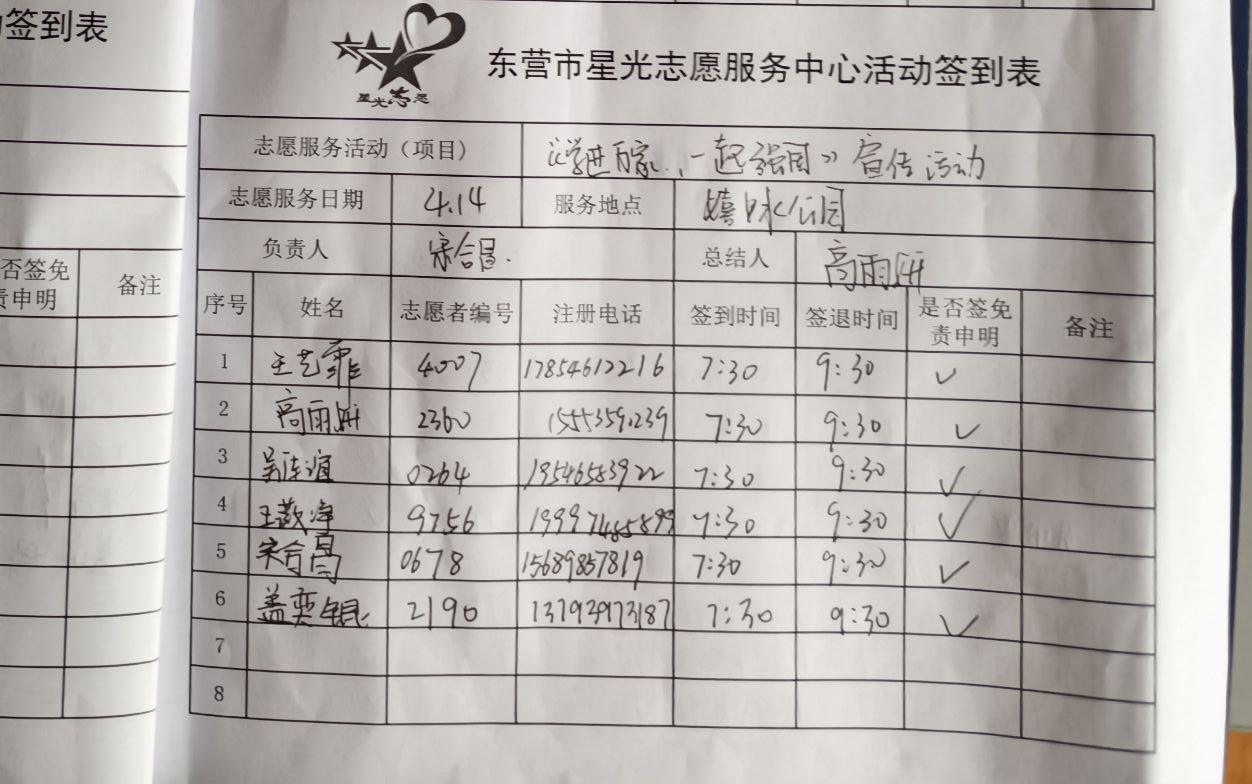 签到表
否签免
责申明
备注
星光志愿
东营市星光志愿服务中心活动签到表
志愿服务活动（项目） 学进万家，一起强国》宣传活动
志愿服务日期 4.14 服务地点 嬉水公园
负责人 宋合昌. 总结人 高雨妍
序号 姓名 志愿者编号 注册电话 签到时间 签退时间 是否签免责申明 备注
1 王艺霏 4007 17854612216 7:30 9:30 ✓
2 高雨妍 2360 15553591239 7:30 9:30 ✓
3 0264 19546583922 7:30 9:30 ✓
4 9756 7:30 9:30 ✓
5 宋合昌 0678 15689857819 7:30 9:30 ✓
6 盖奕锟 2190 13793973187 7:30 9:30 ✓
7
8